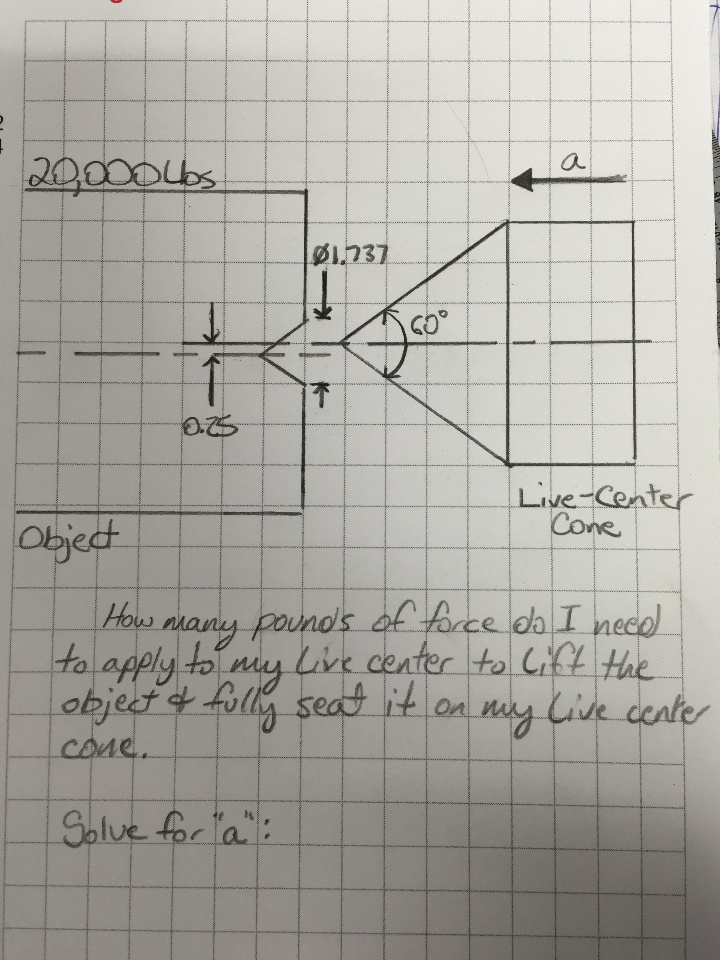 20,000 Lbs
a
Ø1.737
60°
0.25
Live-Center
Cone
Object
How many pounds of force do I need
to apply to my Live center to Lift the
object & fully seat it on my Live center
cone.
Solve for "a":